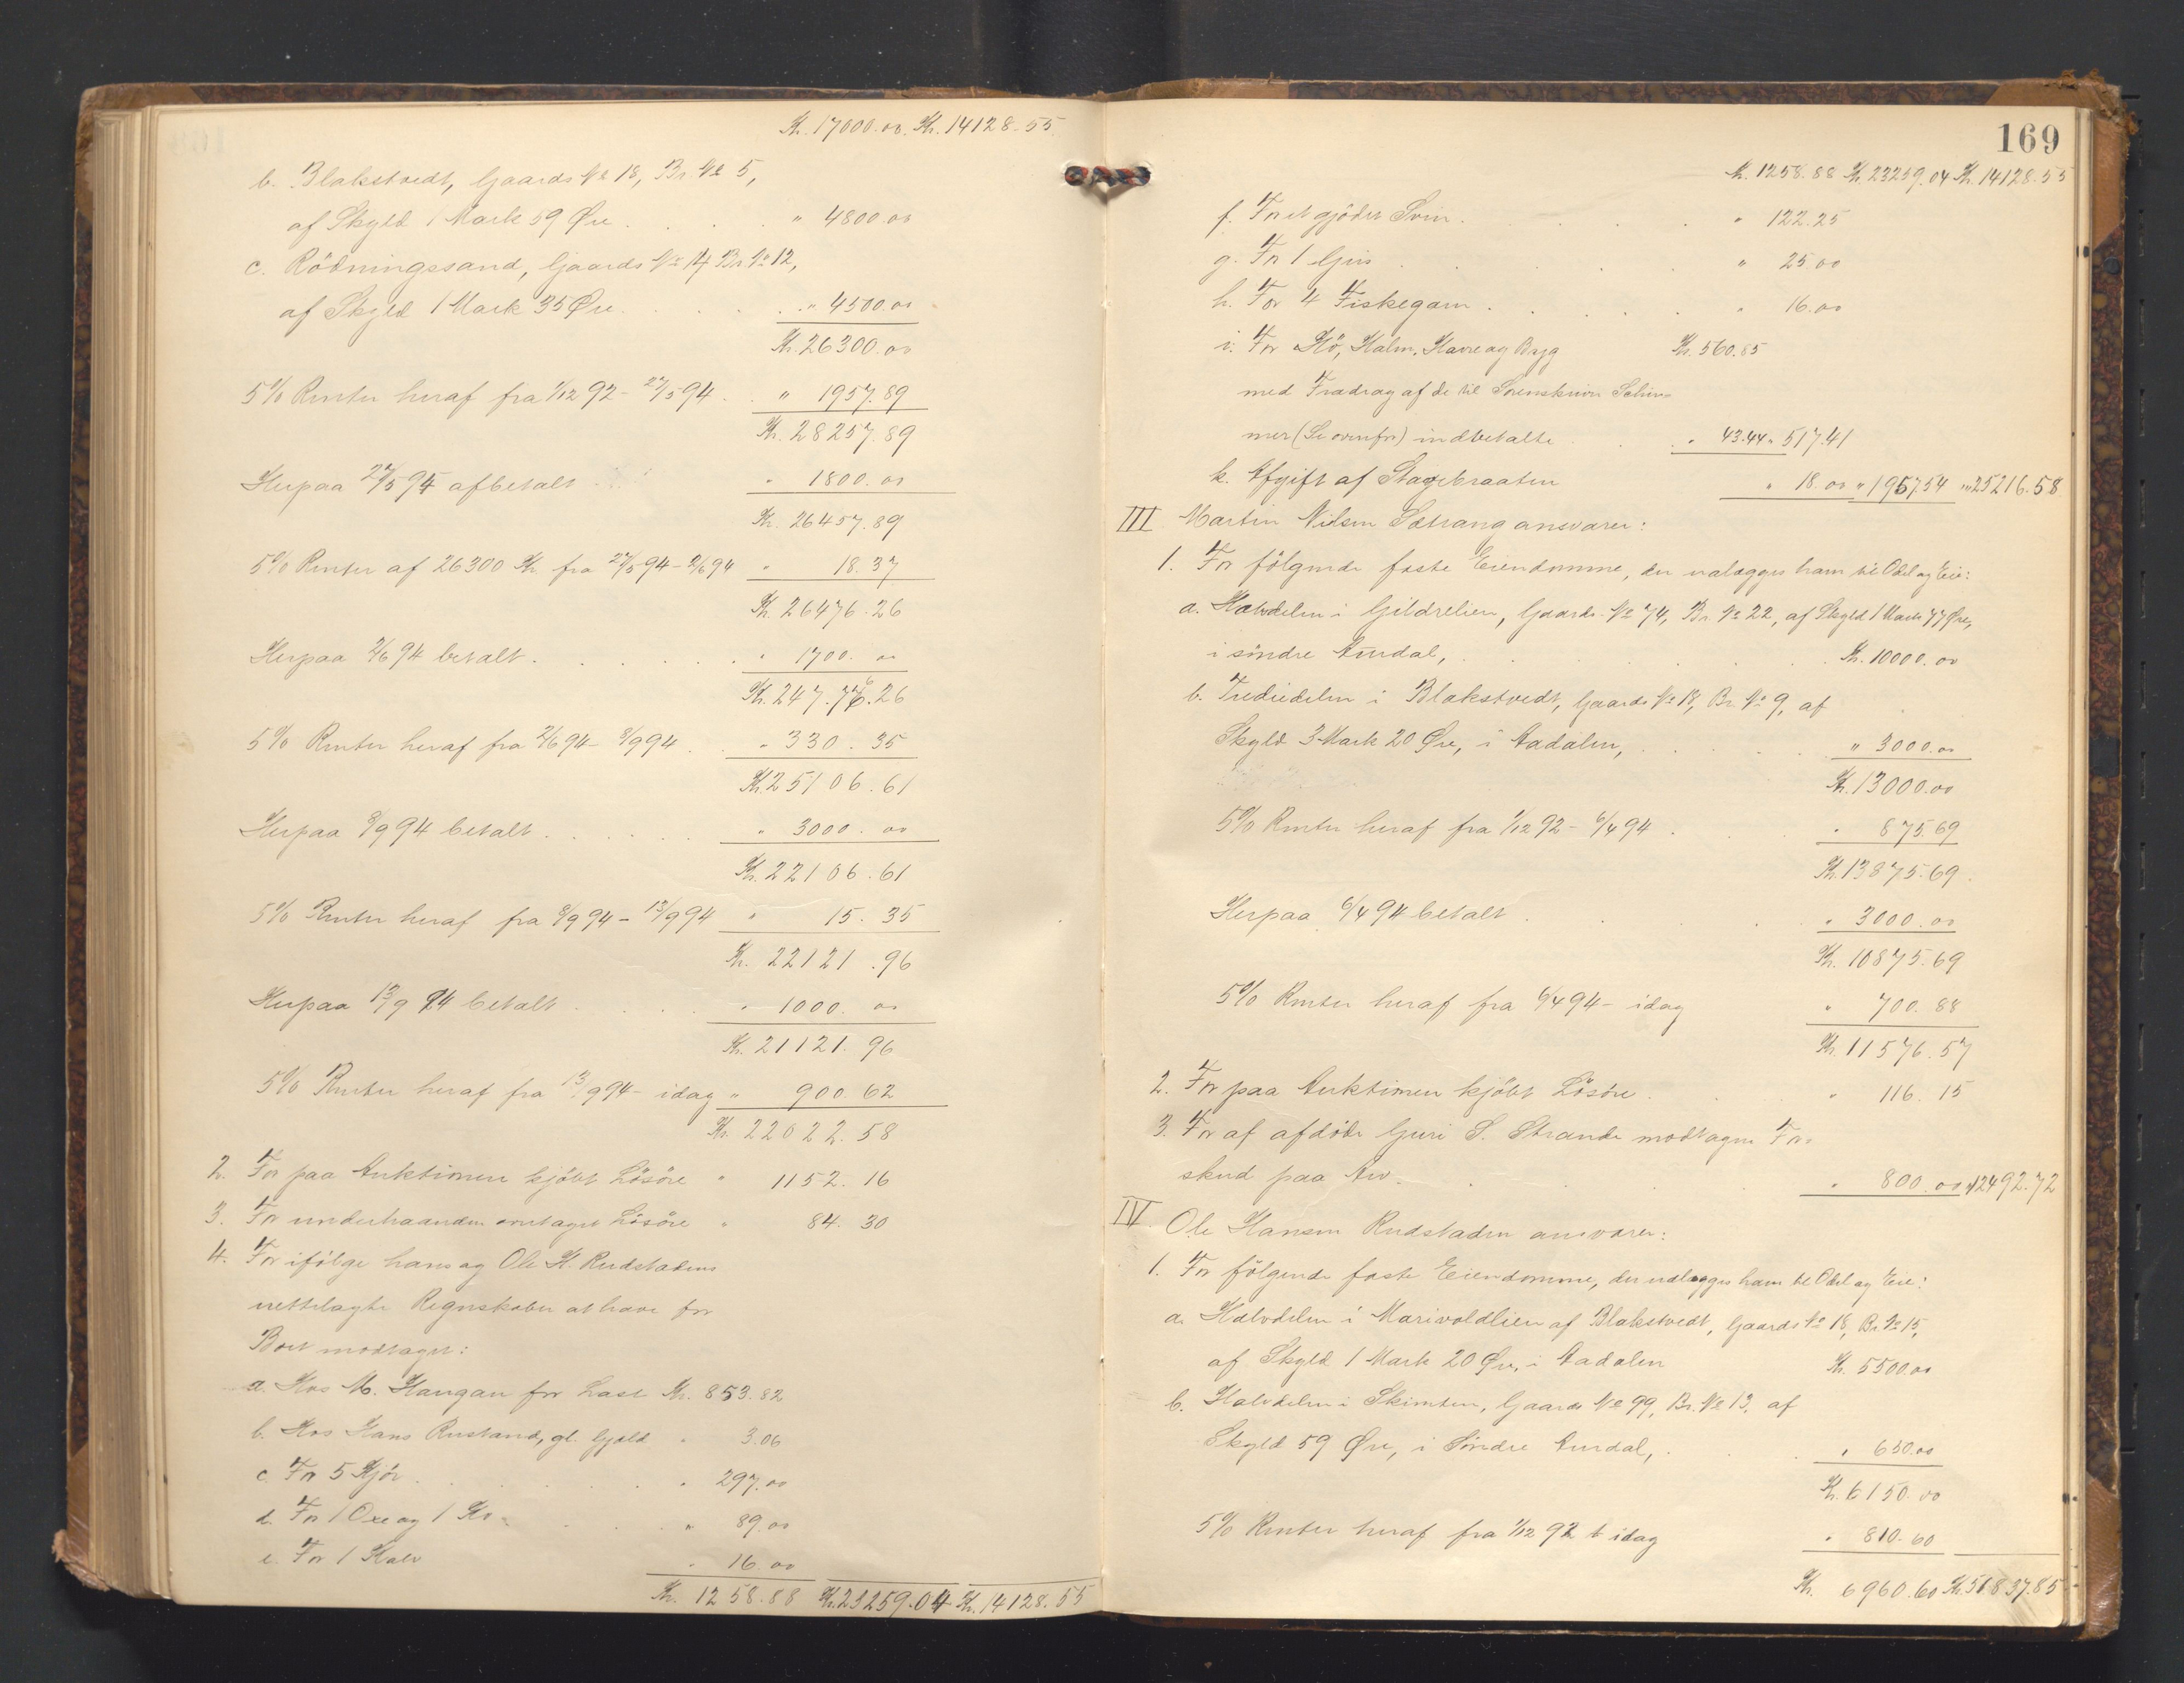 Kr. 17000.00. Kr. 14128-55.
b. Blakstvedt, Gaards № 18, Br. № 5,
af Skyld 1 Mark 59 Øre . . . . " 4800.00
c. Rödningssand, Gaards № 14 Br. № 12,
af Skyld 1 Mark 35 Øre. . . . . " 4500.00
Kr. 26300.00
5% Renter heraf fra 1/12 92 - 27/5 94 . . " 1957.89
Kr. 28257.89
Herpaa 27/5 94 afbetalt . . " 1800.00
Kr. 26457.89
5% Renter af 26300 Kr. fra 27/5 94 - 2/6 94 " 18.37
Kr. 26476.26
Herpaa 2/6 94 betalt . . . . . . " 1700.00
Kr. 24776.26
5% Renter heraf fra 2/6 94 - 8/9 94 . . " 330.35
Kr. 25106.61
Herpaa 8/9 94 betalt . . . . . " 3000.00
Kr. 22106.61
5% Renter heraf fra 8/9 94 - 13/9 94 " 15.35
Kr. 22121.96
Herpaa 13/9 94 betalt . . . . " 1000.00
Kr. 21121.96
5% Renter heraf fra 13/9 94 - idag " 900.62
Kr. 22022.58
2. For paa Auktionen kjöbt Lösöre " 1152.16
3. For underhaanden overtaget Lösöre " 84.30
4. For ifölge hans og Ole H. Rudstadens
rettelagte Regnskaber at have for
Boet modtaget:
a. Hos M. Haugan for Last Kr. 853.82
b. Hos Hans Rustand, gl. Gjæld " 3.06
c. For 5 Kjör . . . . . . " 297.00
d. For 1 Oxe og 1 Ko . . . . " 89.00
e. For 1 Kalv " 16.00
Kr. 1258.88 Kr. 23259.04 Kr. 14128.55
169
Kr. 1258.88 Kr. 23259.04 Kr. 14128.55
f. For et gjödet Svin . . . . " 122.25
g. For 1 Gris . . . . " 25.00
h. For 4 Fiskegarn . . . . . " 16.00
i. For Hö, Halm, Havre og Bygg Kr. 560.85
med Fradrag af de til Sorenskriver Schive-
mer (Se ovenfor) indbetalte . . . " 43.44 " 517.41
k. Afgift af Stagebraaten " 18.00 " 1957.54 " 25216.58
III Martin Nilsen Sætrang ansvarer:
1. For fölgende faste Eiendomme, der udlægges ham til Odel og Eie:
a. Halvdelen i Gildrelien, Gaards-№ 74, Br. № 22, af Skyld 1 Mark 77 Øre,
i söndre Aurdal, . . . . . . Kr. 10000.00
b. Trediedelen i Blakstvedt, Gaards № 18, Br. № 9, af
Skyld 3 Mark 20 Øre, i Aadalen, . . . . . " 3000.00
Kr. 13000.00
5% Renter heraf fra 1/12 92 - 6/4 94 . . . " 875.69
Kr. 13875.69.
Herpaa 6/4 94 betalt . . . . " 3000.00
Kr. 10875.69
5% Renter heraf fra 6/4 94 - idag " 700.88
Kr. 11576.57
2. For paa Auktionen kjöbt Lösöre . . " 116.15
3. For af afdöde Guri S. Strande modtagen For-
skud paa Arv. . . . . " 800.00 " 12492.72
IV. Ole Hansen Rudstaden ansvarer:
1. For fölgende faste Eiendomme, der udlægges ham til Odel og Eie:
a. Halvdelen i Marivoldlien af Blakstvedt, Gaards № 18, Br. № 15,
af Skyld 1 Mark 20 Øre, i Aadalen Kr. 5500.00
b. Halvdelen i Skimten, Gaards № 99, Br. № 13, af
Skyld 59 Øre, i Söndre Aurdal, . . " 650.00
Kr. 6150.00
5% Renter heraf fra 1/12 92 t. idag " 810.60
Kr. 6960.60 Kr. 51837.85